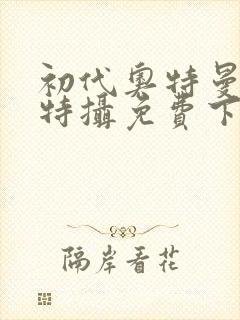 初代奥特曼
特攝免費下
隔岸看花